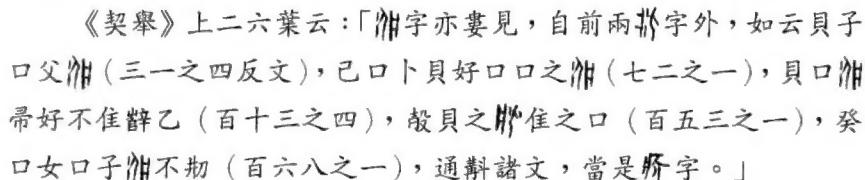 《契舉》上二六葉云：「字亦婁見，自前兩字外，如云貝子
口父（三一之四反文），己口卜貝好口口之（七二之一），貝口
帚好不隹辥乙（百十三之四），㱿貝之隹之口（百五三之一），癸
口女口子不㓞（百六八之一），通斠諸文，當是字。」